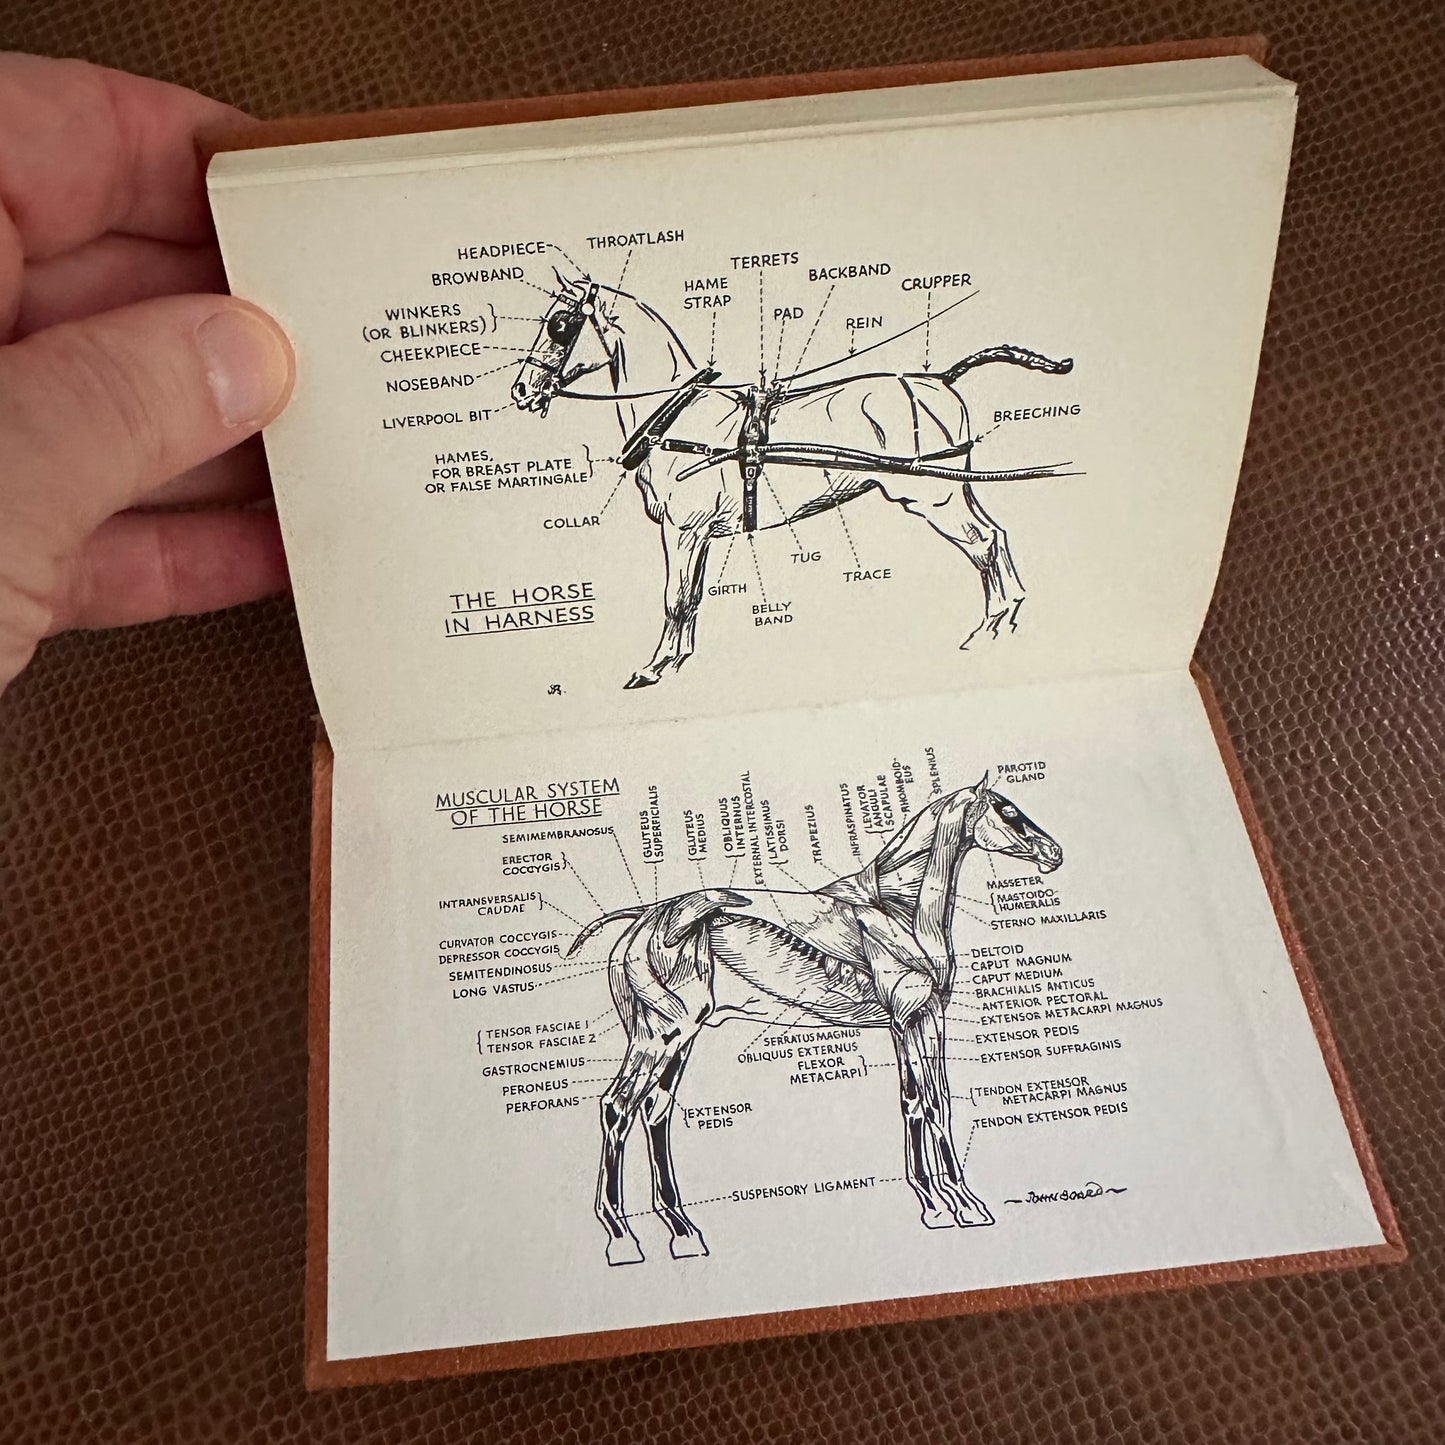 HEADPIECE
THROATLASH
BROWBAND
TERRETS
HAME
STRAP
BACKBAND
CRUPPER
WINKERS
(OR BLINKERS)
PAD
REIN
CHEEKPIECE
NOSEBAND
LIVERPOOL BIT
BREECHING
HAMES,
FOR BREAST PLATE
OR FALSE MARTINGALE
COLLAR
TUG
TRACE
GIRTH
BELLY
BAND
THE HORSE
IN HARNESS
MUSCULAR SYSTEM
OF THE HORSE
SEMIMEMBRANOSUS
ERECTOR
COCCYGIS
INTRANSVERSALIS
CAUDAE
CURVATOR COCCYGIS
DEPRESSOR COCCYGIS
SEMITENDINOSUS
LONG VASTUS
TENSOR FASCIAE 1
TENSOR FASCIAE 2
GASTROCNEMIUS
PERONEUS
PERFORANS
GLUTEUS
SUPERFICIALIS
GLUTEUS
MEDIUS
OBLIQUUS
INTERNUS
EXTERNAL INTERCOSTAL
LATISSIMUS
DORSI
TRAPEZIUS
INFRASPINATUS
LEVATOR
ANGULI
SCAPULAE
RHOMBOID-
EUS
SPLENIUS
PAROTID
GLAND
MASSETER
MASTOIDO-
HUMERALIS
STERNO MAXILLARIS
DELTOID
CAPUT MAGNUM
CAPUT MEDIUM
BRACHIALIS ANTICUS
ANTERIOR PECTORAL
EXTENSOR METACARPI MAGNUS
EXTENSOR PEDIS
EXTENSOR SUFFRAGINIS
TENDON EXTENSOR
METACARPI MAGNUS
TENDON EXTENSOR PEDIS
SERRATUS MAGNUS
OBLIQUUS EXTERNUS
FLEXOR
METACARPI
EXTENSOR
PEDIS
SUSPENSORY LIGAMENT
JOHN BOARD